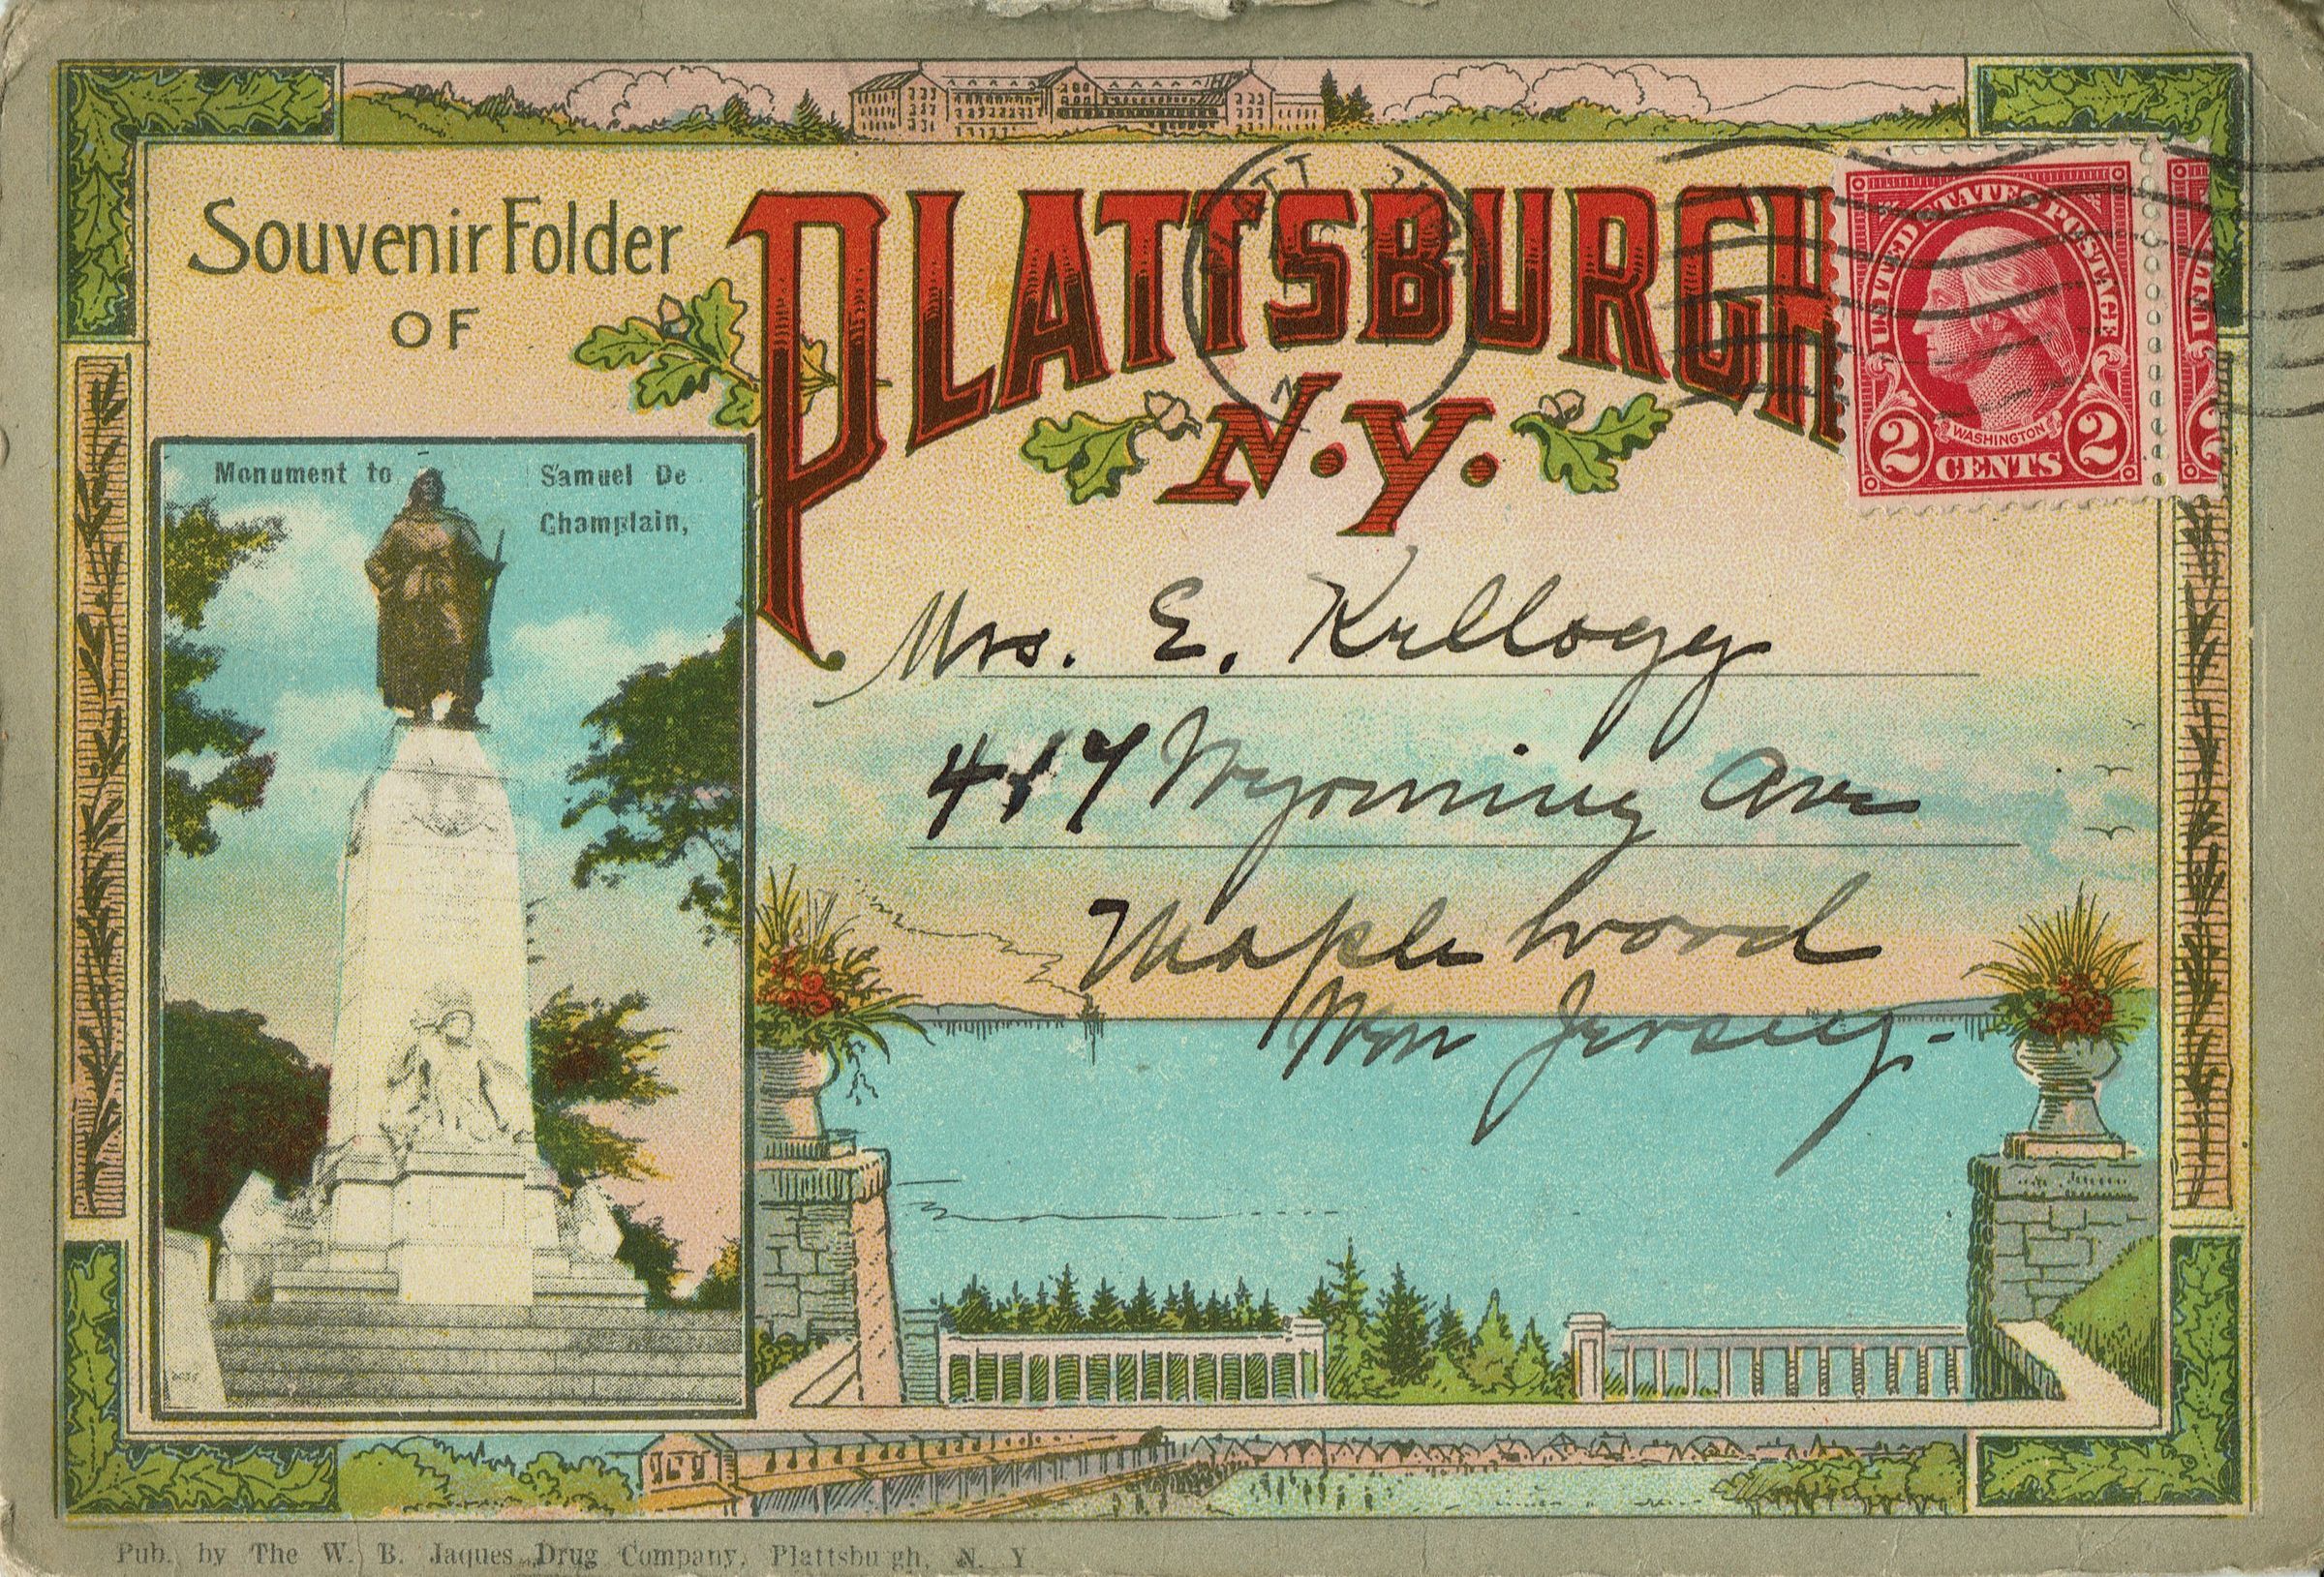 Souvenir Folder
OF
PLATTSBURGH
N.Y.
Monument to Samuel De
Champlain,
UNITED STATES POSTAGE
WASHINGTON
2 CENTS 2
Mrs. E. Kellogg
417 Wyoming Ave
Maplewood
New Jersey.
Pub. by The W. B. Jaques Drug Company, Plattsburgh, N. Y